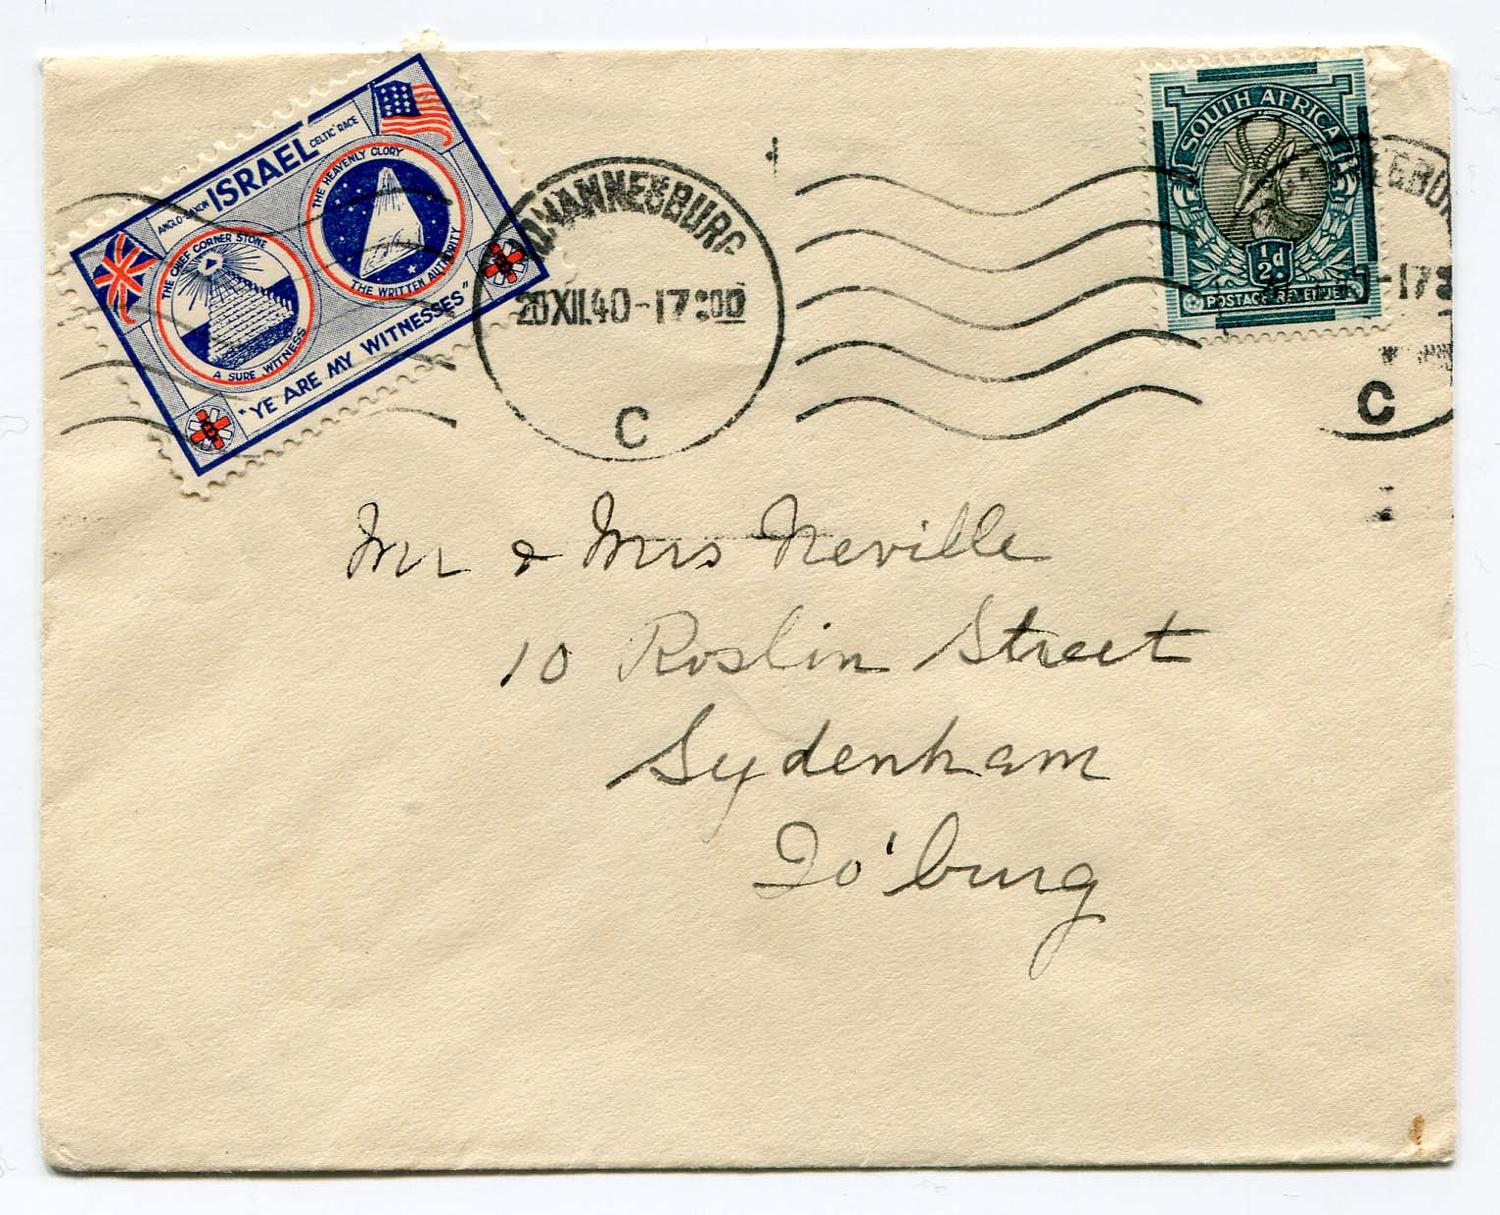 ANGLO-SAXON ISRAEL CELTIC RACE
THE CHIEF CORNER STONE
A SURE WITNESS
THE HEAVENLY GLORY
THE WRITTEN AUTHORITY
"YE ARE MY WITNESSES"
JOHANNESBURG
20XII.40-17:00
C
SOUTH AFRICA
½d
POSTAGE REVENUE
-17
C
Mr & Mrs Neville
10 Roslin Street
Sydenham
Jo'burg